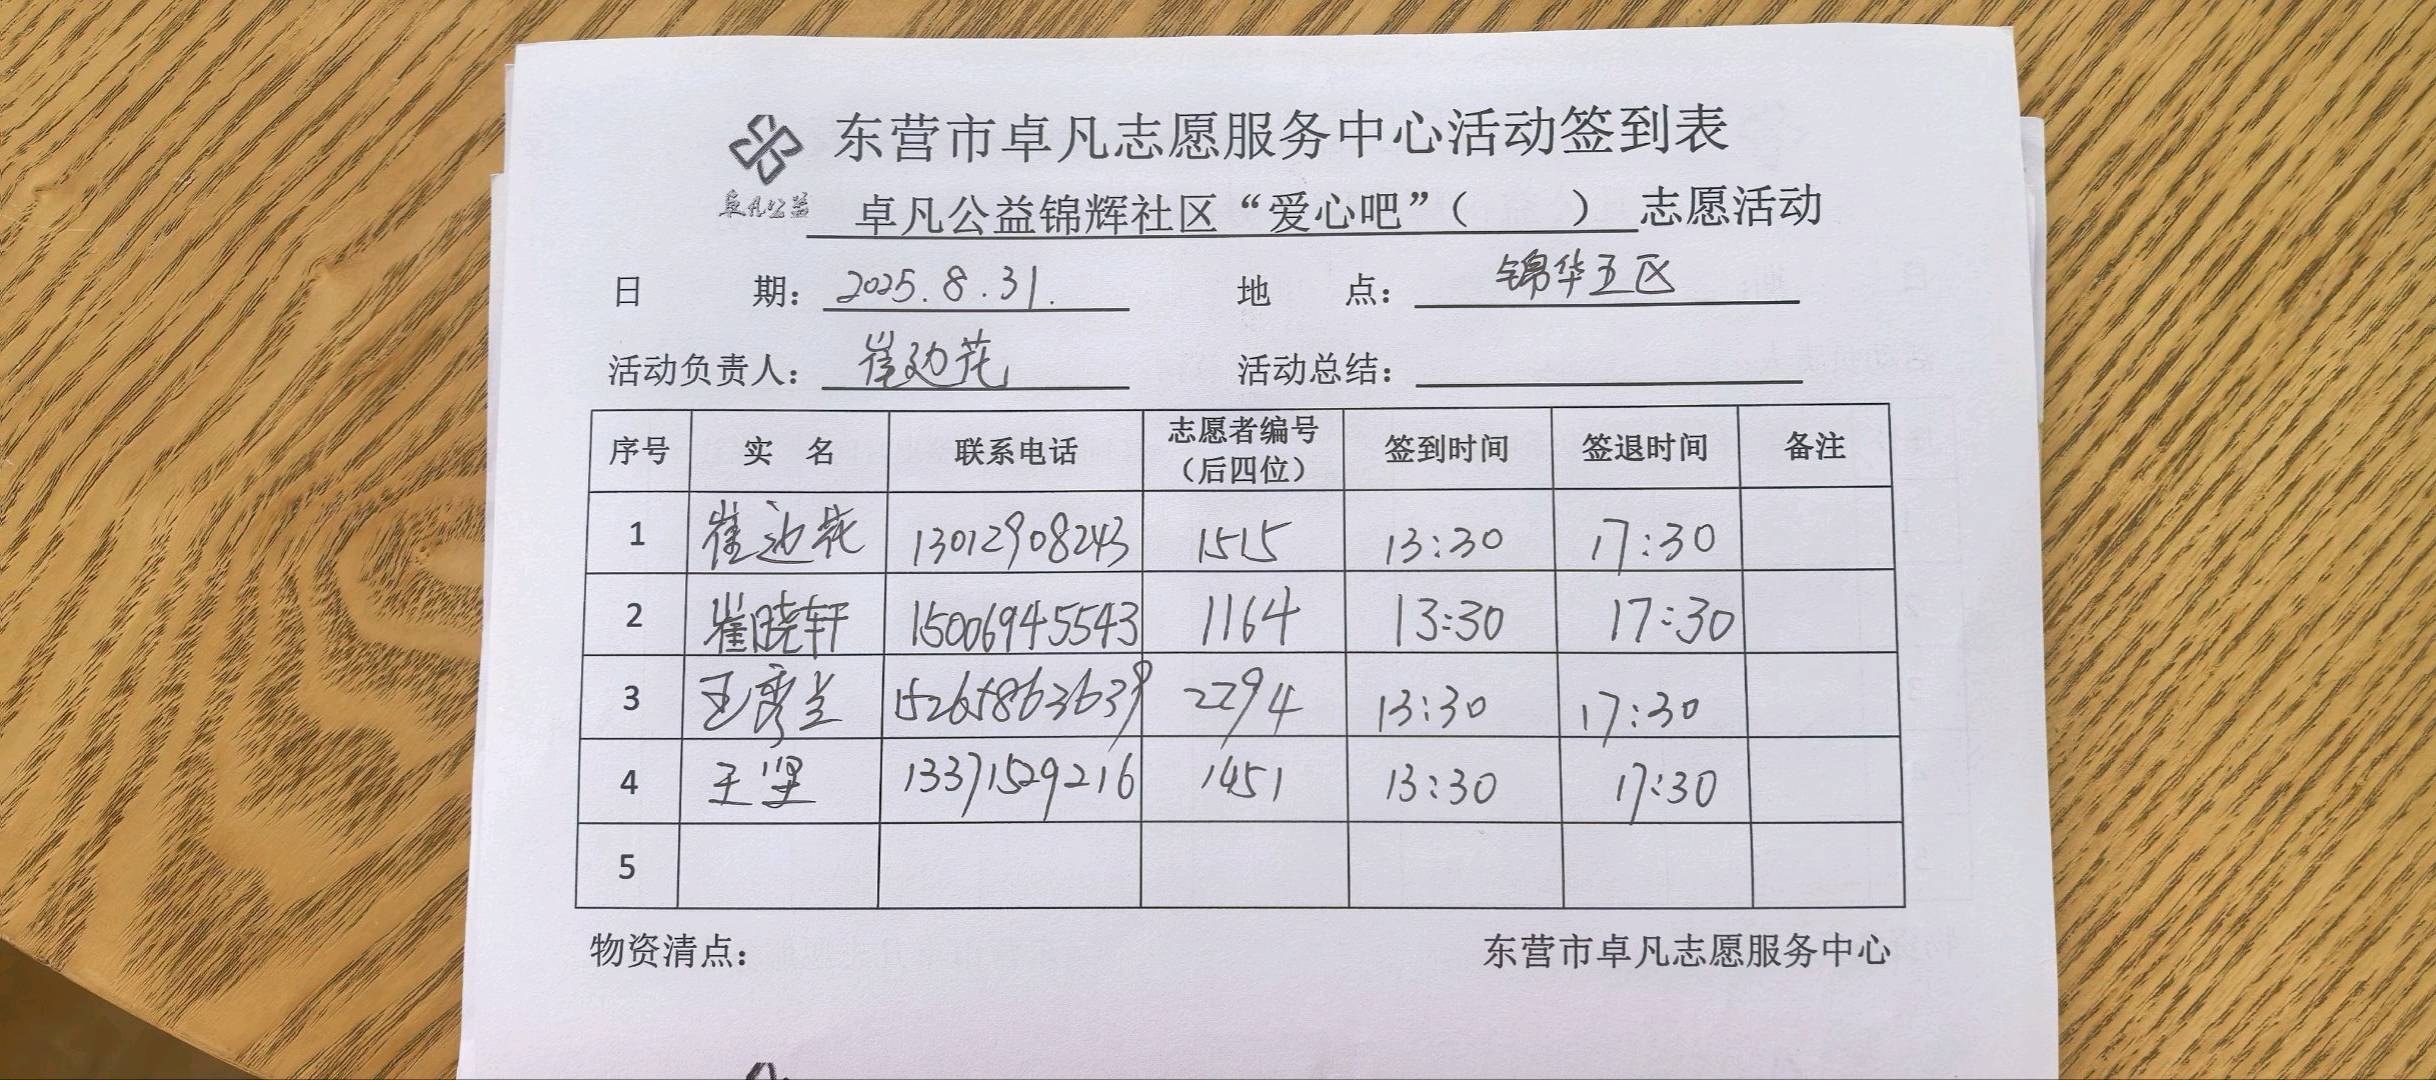 东营市卓凡志愿服务中心活动签到表
卓凡公益
卓凡公益锦辉社区“爱心吧”（　　）志愿活动
日　　期：2025.8.31.　　地　　点：锦华五区
活动负责人：崔花　　活动总结：
序号　实　名　联系电话　志愿者编号（后四位）　签到时间　签退时间　备注
1　崔花　13012908243　1515　13:30　17:30
2　崔晓轩　15006945543　1164　13:30　17:30
3　王秀兰　15265863639　2294　13:30　17:30
4　王坚　13371529216　1451　13:30　17:30
5
物资清点：　　东营市卓凡志愿服务中心